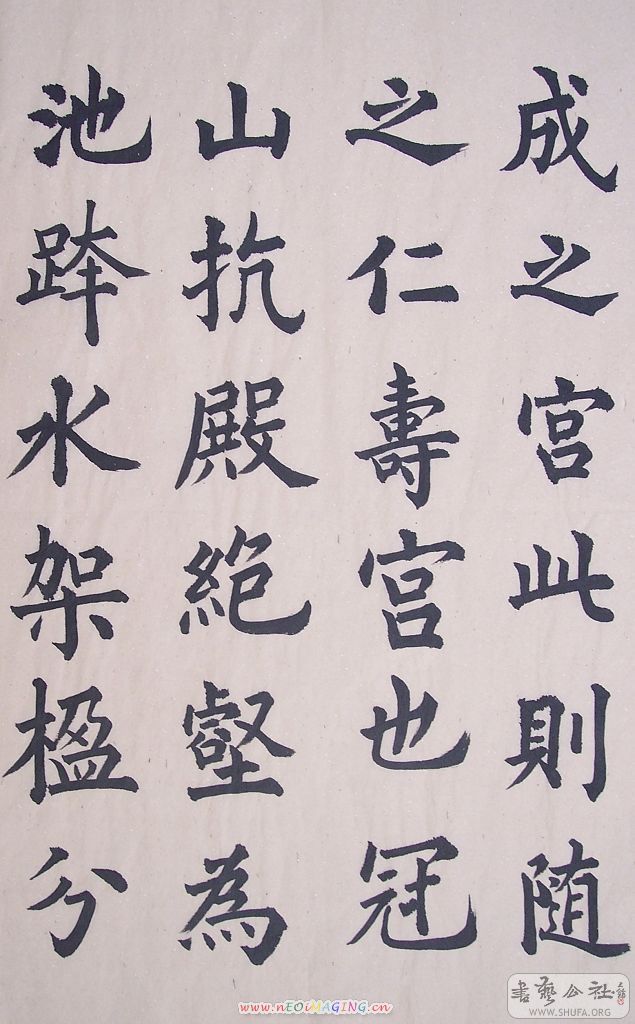 成之宫此則随
之仁壽宫也冠
山抗殿絶壑為
池跨水架楹分
書藝公社
WWW.SHUFA.ORG
www.nEOiMAGING.cn